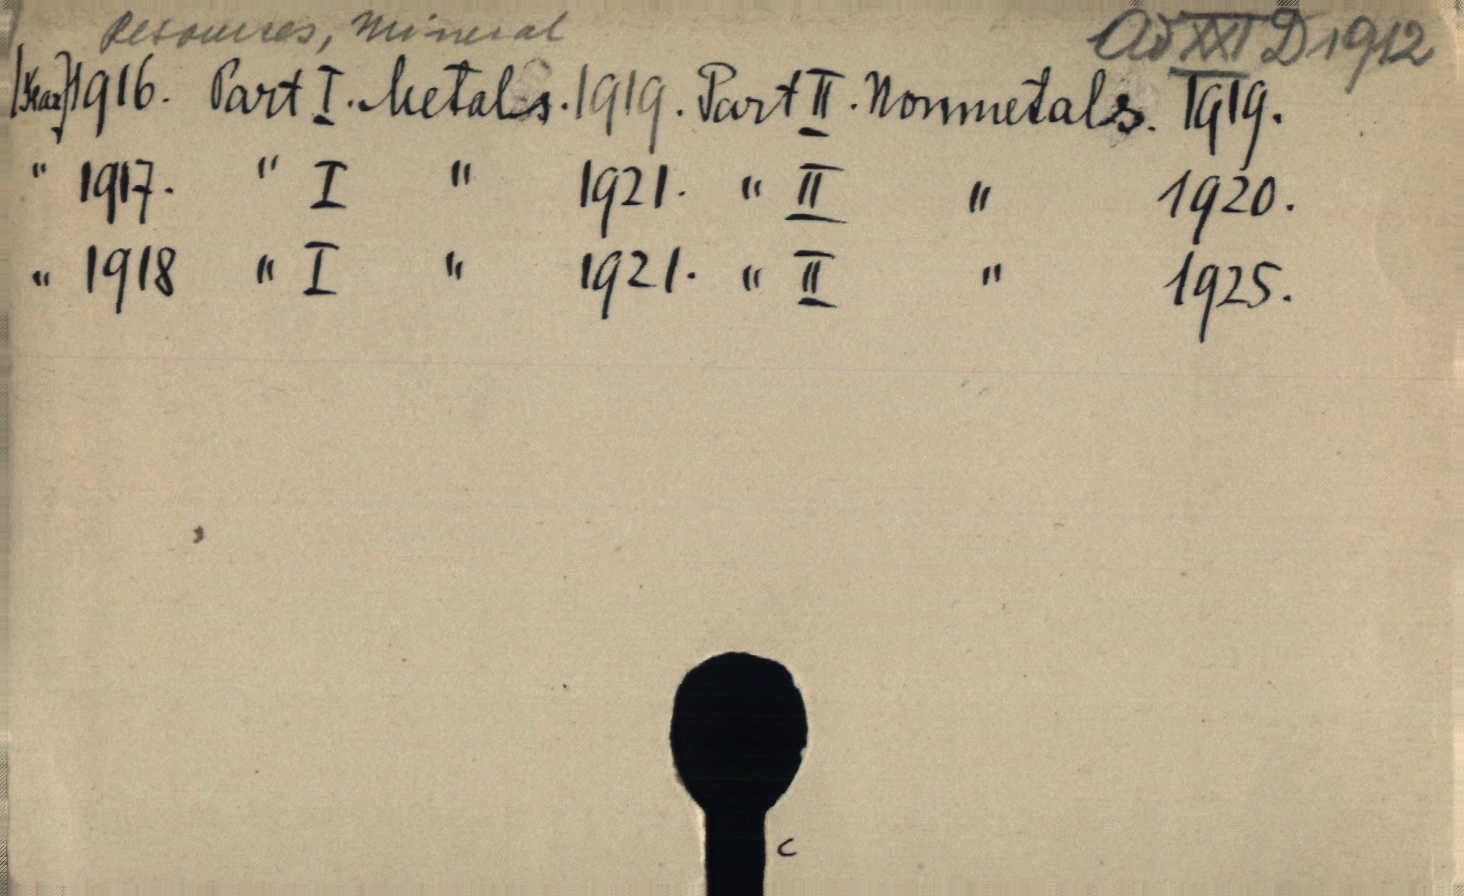 Resources, Mineral
Ad XXI D 1912
[Year] 1916. Part I. Metals. 1919. Part II. Nonmetals. 1919.
" 1917. " I " 1921. " II " 1920.
" 1918 " I " 1921. " II " 1925.
c